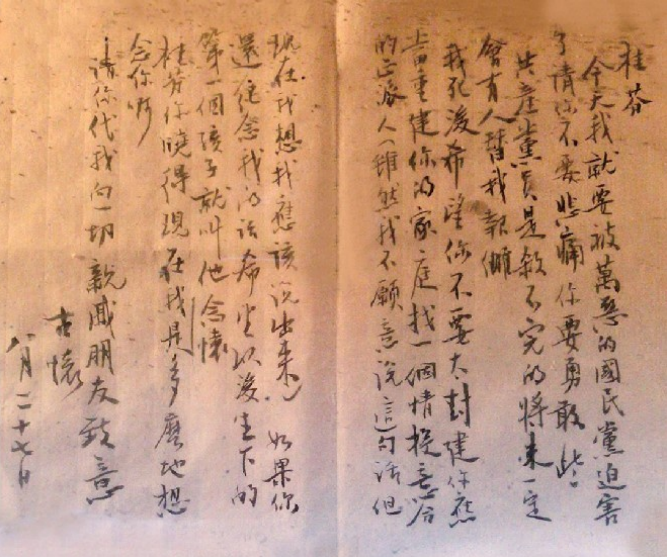 桂芬
今天我就要被萬惡的國民黨迫害
了請你不要悲痛你要勇敢些
共產黨員是殺不完的將來一定
會有人替我報讎
我死後希望你不要太封建你應
當重建你的家庭找一個情投意合
的正派人（雖然我不願意說這句話但
現在我想我應該說出來）如果你
還紀念我的話希望以後生下的
第一個孩子就叫他念懷
桂芬你曉得現在我是多麼地想
念你啊
請你代我向一切親戚朋友致意
古懷
八月二十七日